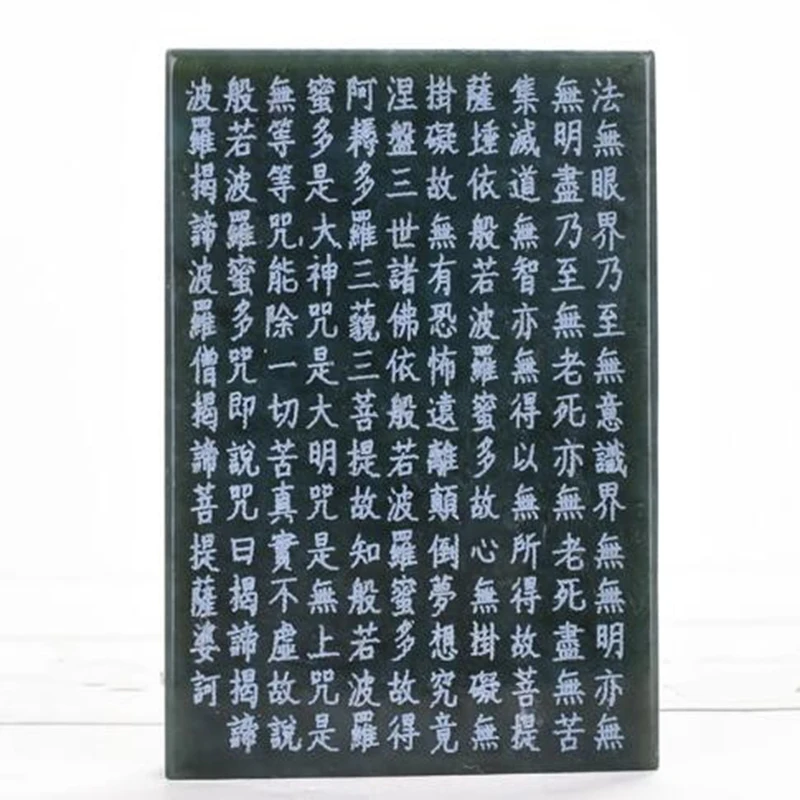 法無眼界乃至無意識界無無明亦無
無明盡乃至無老死亦無老死盡無苦
集滅道無智亦無得以無所得故菩提
薩埵依般若波羅蜜多故心無掛礙無
掛礙故無有恐怖遠離顛倒夢想究竟
涅盤三世諸佛依般若波羅蜜多故得
阿耨多羅三藐三菩提故知般若波羅
蜜多是大神咒是大明咒是無上咒是
無等等咒能除一切苦真實不虛故說
般若波羅蜜多咒即說咒曰揭諦揭諦
波羅揭諦波羅僧揭諦菩提薩婆訶